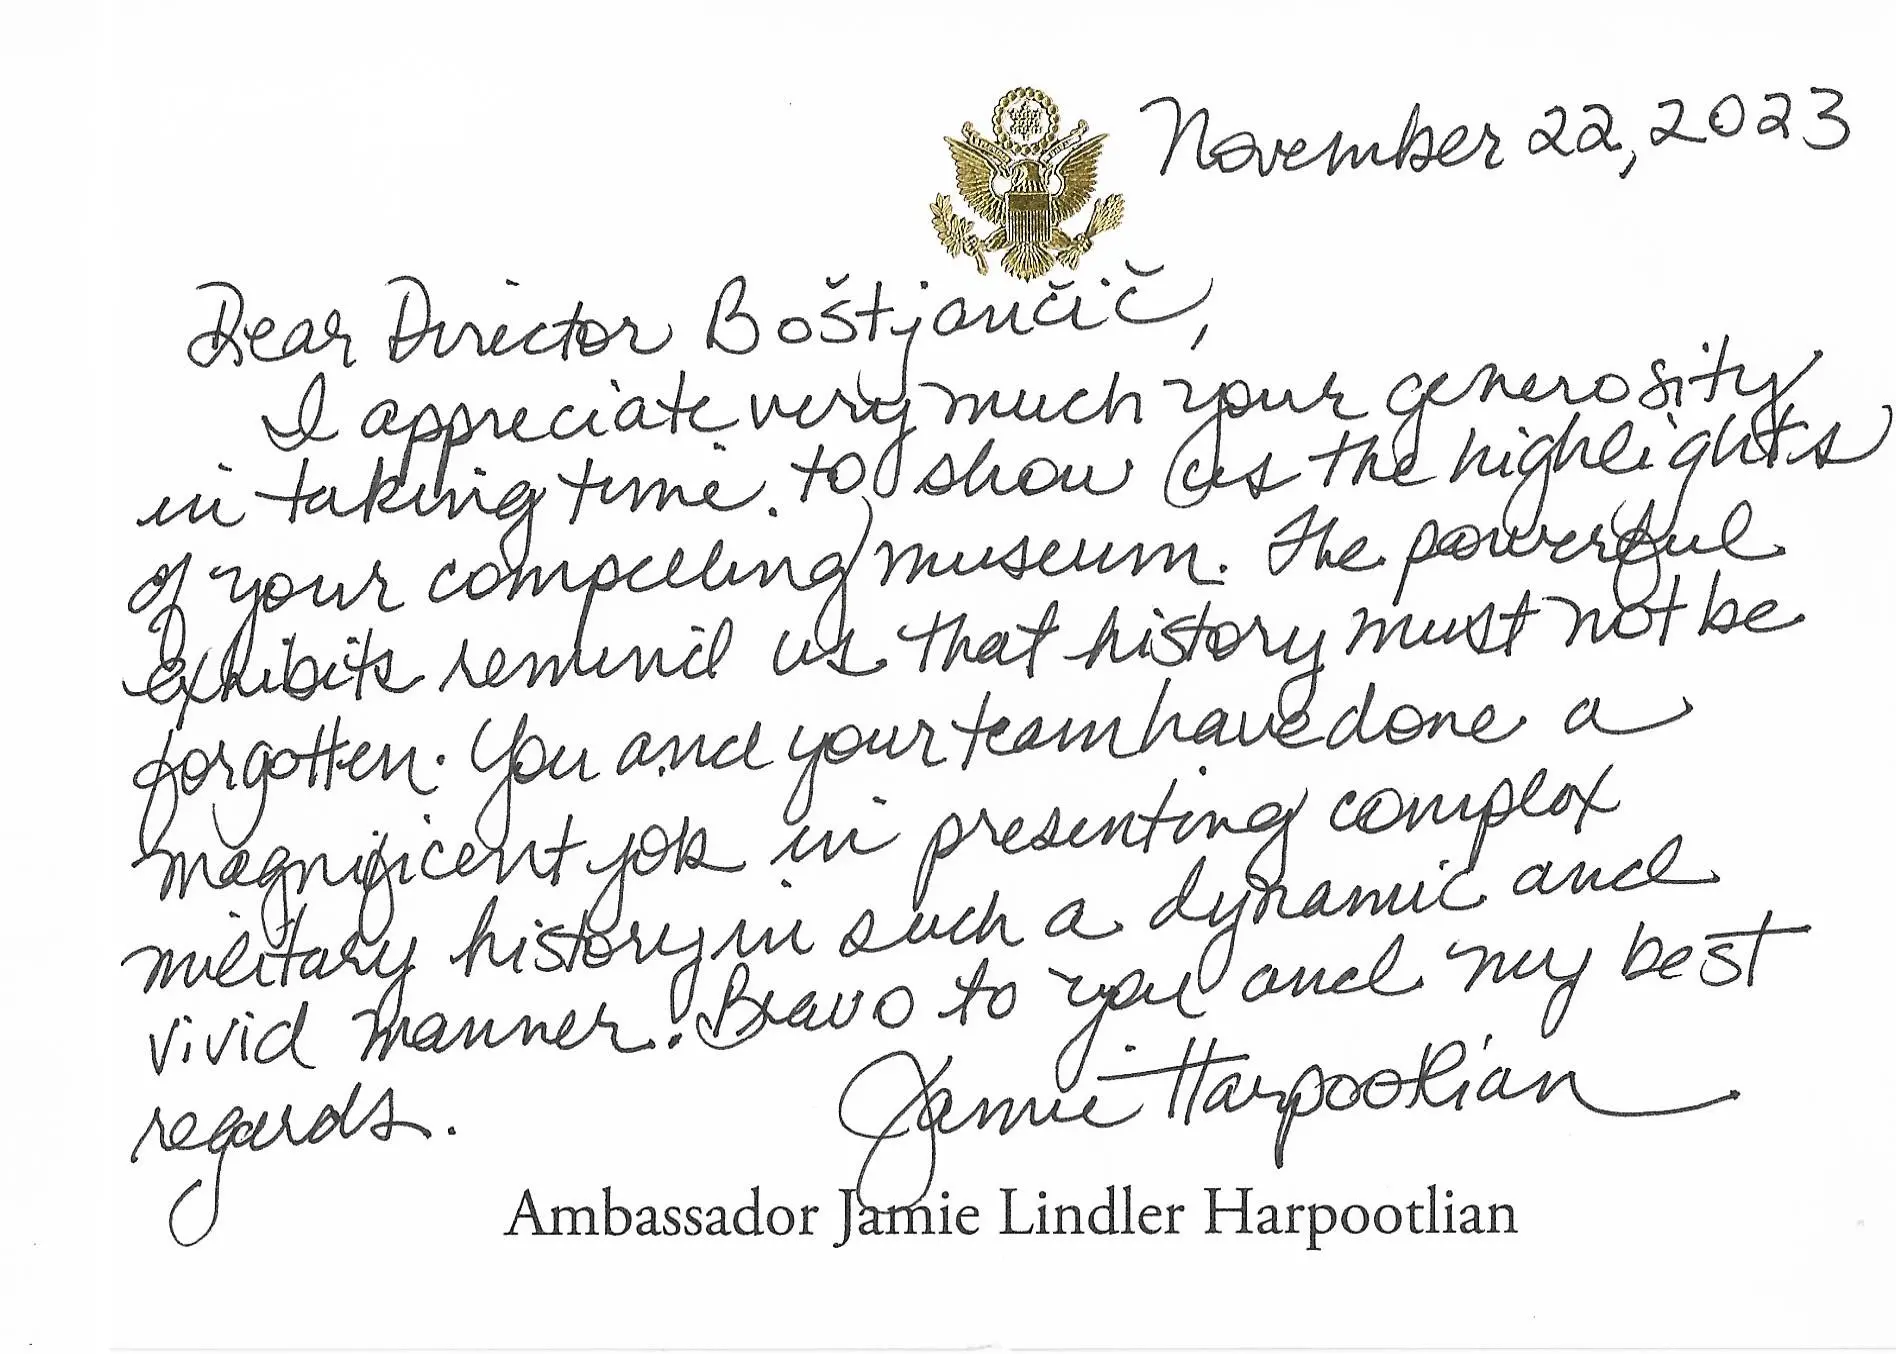 November 22, 2023
Dear Director Boštjančič,
I appreciate very much your generosity
in taking time to show us the highlights
of your compelling museum. The powerful
exhibits remind us that history must not be
forgotten. You and your team have done a
magnificent job in presenting complex
military history in such a dynamic and
vivid manner. Bravo to you and my best
regards.
Jamie Harpootlian
Ambassador Jamie Lindler Harpootlian